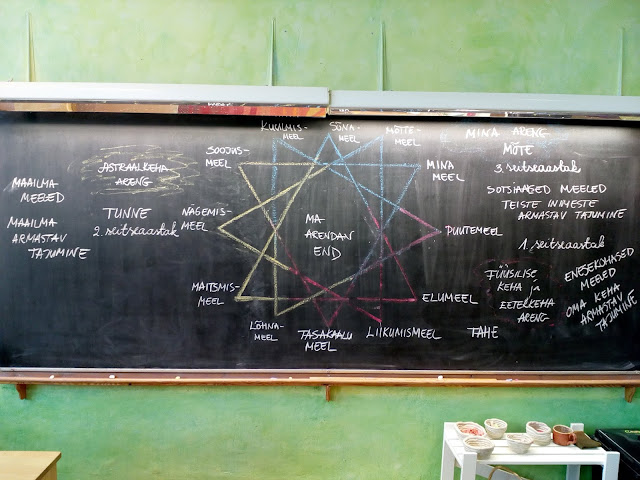 KUULMIS-
MEEL
SÕNA-
MEEL
MÕTTE-
MEEL
MINA
MEEL
PUUTEMEEL
ELUMEEL
LIIKUMISMEEL
TASAKAALU
MEEL
LÕHNA-
MEEL
MAITSMIS-
MEEL
NÄGEMIS-
MEEL
SOOJUS-
MEEL
MA
ARENDAN
END
MAAILMA-
MEELED
MAAILMA
ARMASTAV
TAJUMINE
ASTRAALKEHA
ARENG
TUNNE
2. seitseaastak
MINA ARENG
MÕTE
3. seitseaastak
SOTSIAALSED MEELED
TEISTE INIMESTE
ARMASTAV TAJUMINE
1. seitseaastak
FÜÜSILISE
KEHA ja
EETERKEHA
ARENG
TAHE
ENESEKOHASED
MEELED
OMA KEHA
ARMASTAV
TAJUMINE